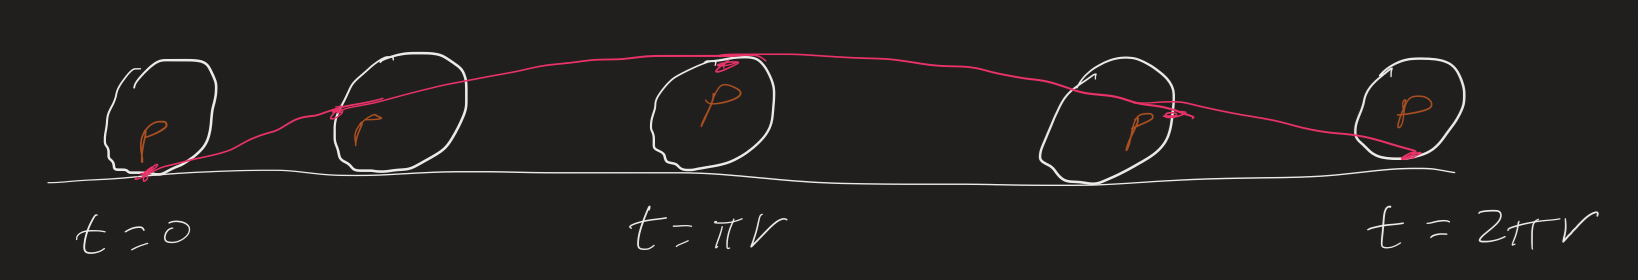 P P P P P
t=0 t=πr t=2πr